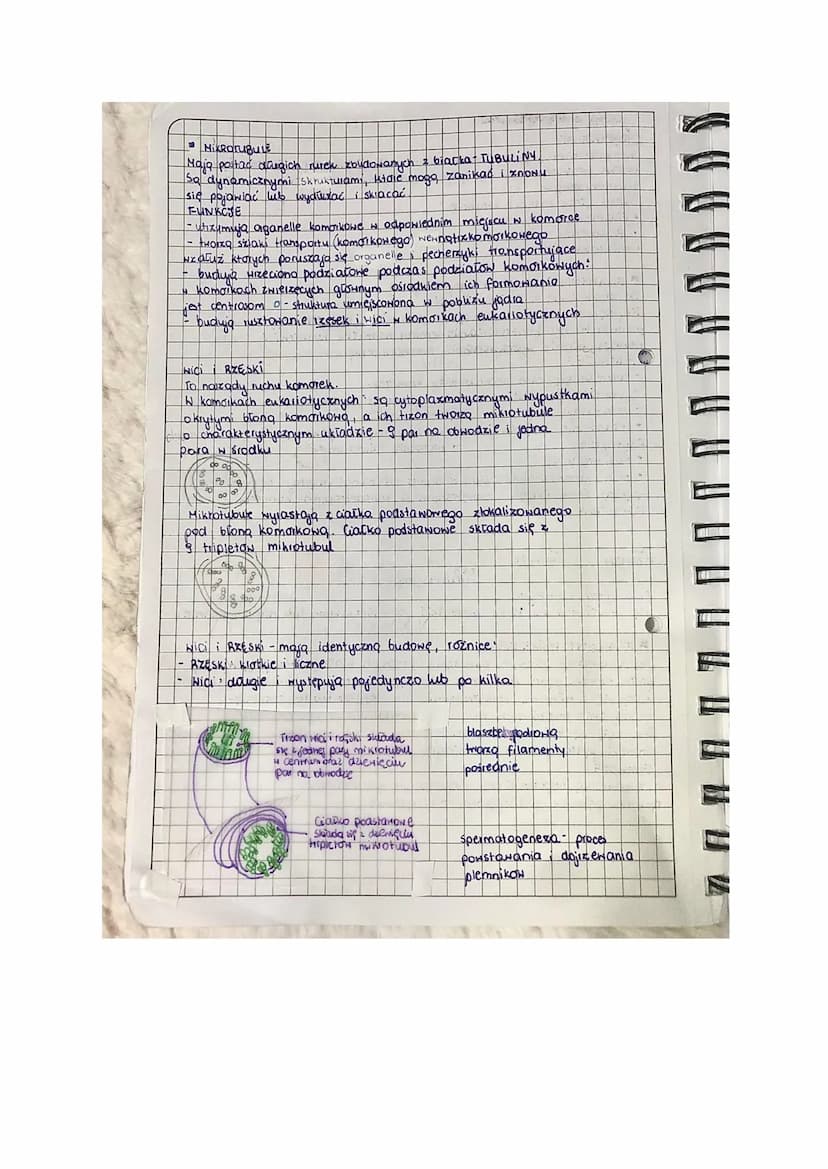 ▪ MIKROTUBULE
Mają postać długich rurek zbudowanych z białka - TUBULINY.
Są dynamicznymi strukturami, które mogą zanikać i znowu
się pojawiać lub wydłużać i skracać
FUNKCJE
- utrzymują organelle komórkowe w odpowiednim miejscu w komórce
- tworzą szlaki transportu (komórkowego) wewnątrzkomórkowego
wzdłuż których poruszają się organelle i pęcherzyki transportujące
- budują wrzeciona podziałowe podczas podziałów komórkowych:
w komórkach zwierzęcych głównym ośrodkiem ich formowania
jest centrosom - struktura umiejscowiona w pobliżu jądra
- budują rusztowanie rzęsek i wici w komórkach eukariotycznych
WICI i RZĘSKI
To narządy ruchu komórek.
W komórkach eukariotycznych są cytoplazmatycznymi wypustkami
okrytymi błoną komórkową, a ich trzon tworzą mikrotubule
o charakterystycznym układzie - 9 par na obwodzie i jedna
para w środku
Mikrotubule wyrastają z ciałka podstawowego zlokalizowanego
pod błoną komórkową. Ciałko podstawowe składa się z
9 tripletów mikrotubul
WICI i RZĘSKI - mają identyczną budowę, różnice:
- RZĘSKI: krótkie i liczne
- WICI: długie i występują pojedynczo lub po kilka
Trzon wici i rzęski składa
się z jednej pary mikrotubul
w centrum oraz dziewięciu
par na obwodzie
Ciałko podstawowe
składa się z dziewięciu
tripletów mikrotubul
blaszkę jądrową
tworzą filamenty
pośrednie
spermatogeneza - proces
powstawania i dojrzewania
plemników